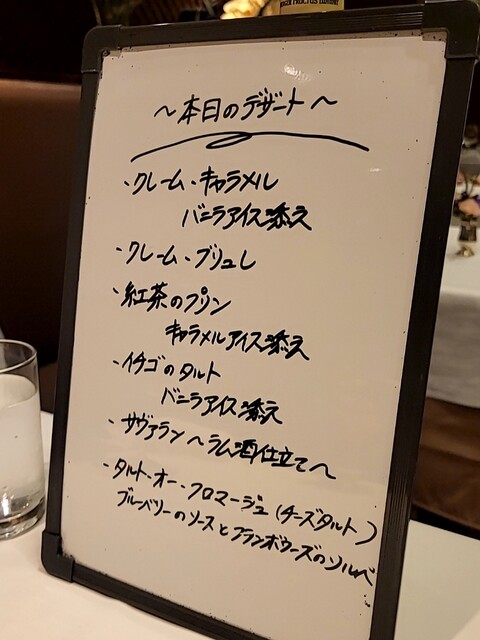 ～本日のデザート～
・クレーム・キャラメル
バニラアイス添え
・クレーム・ブリュレ
・紅茶のプリン
キャラメルアイス添え
・イチゴのタルト
バニラアイス添え
・サヴァラン～ラム酒仕立て～
・タルト・オー・フロマージュ(チーズタルト)
ブルーベリーのソースとフランボワーズのソルベ